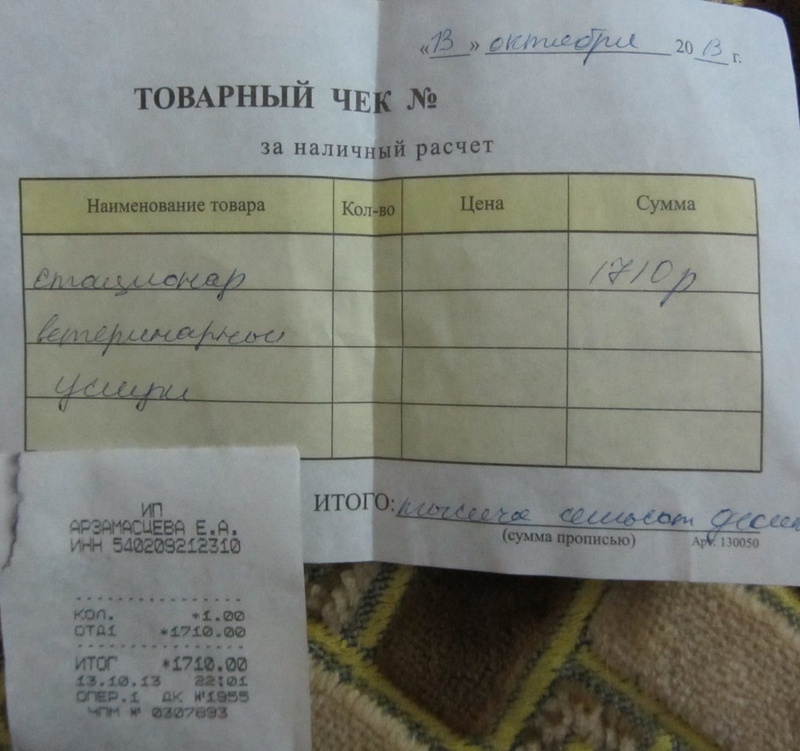 «13» октября 2013 г.
ТОВАРНЫЙ ЧЕК №
за наличный расчет
Наименование товара Кол-во Цена Сумма
стационар 1710р
ветеринарные
услуги
ИТОГО: тысяча семьсот десять
(сумма прописью) Арт. 130050
ИП
АРЗАМАСЦЕВА Е.А.
ИНН 540209212310
КОЛ. *1.00
ОТД1 *1710.00
ИТОГ *1710.00
13.10.13 22:01
ОПЕР.1 ДК №1955
ЧПМ № 0307893